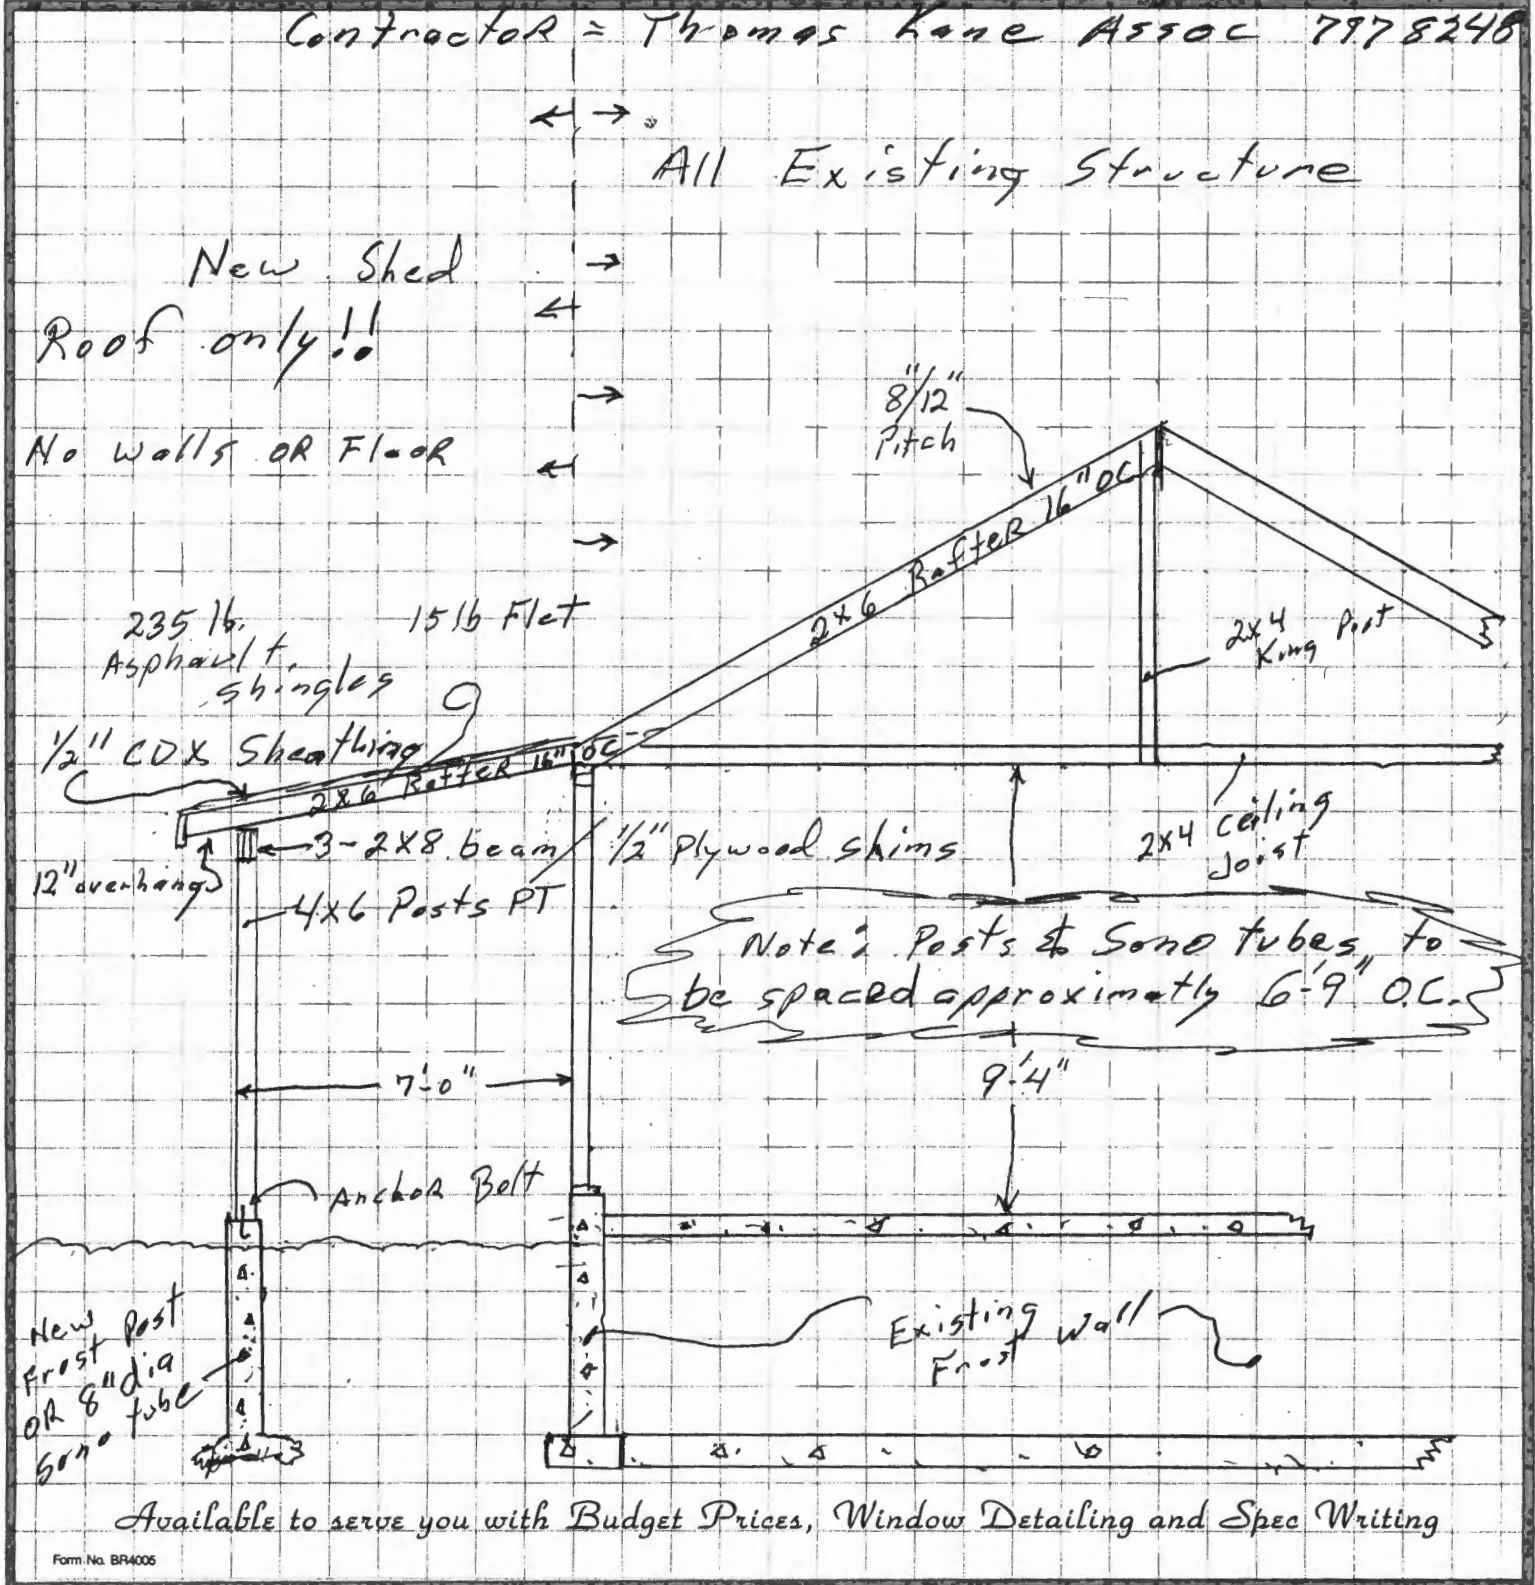 Contractor = Thomas Kane Assoc 797 8248
All Existing Structure
New Shed
Roof only!!
No walls OR Floor
8"/12"
Pitch
2x6 Rafter 16" OC
2x4
King Post
235 lb.
Asphault
shingles
15 lb Flet
1/2" CDX Sheathing
2x6 Rafter 16" OC
3-2x8 beam / 1/2" Plywood shims
12" overhang
4x6 Posts PT
2x4 Ceiling
Joist
Note: Posts & Sono tubes to
be spaced approximatly 6'-9" O.C.
7'-0"
9'-4"
Anchor Bolt
New
Frost Post
OR 8" dia
sono tube
Existing
Frost Wall
Available to serve you with Budget Prices, Window Detailing and Spec Writing
Form No. BR4005